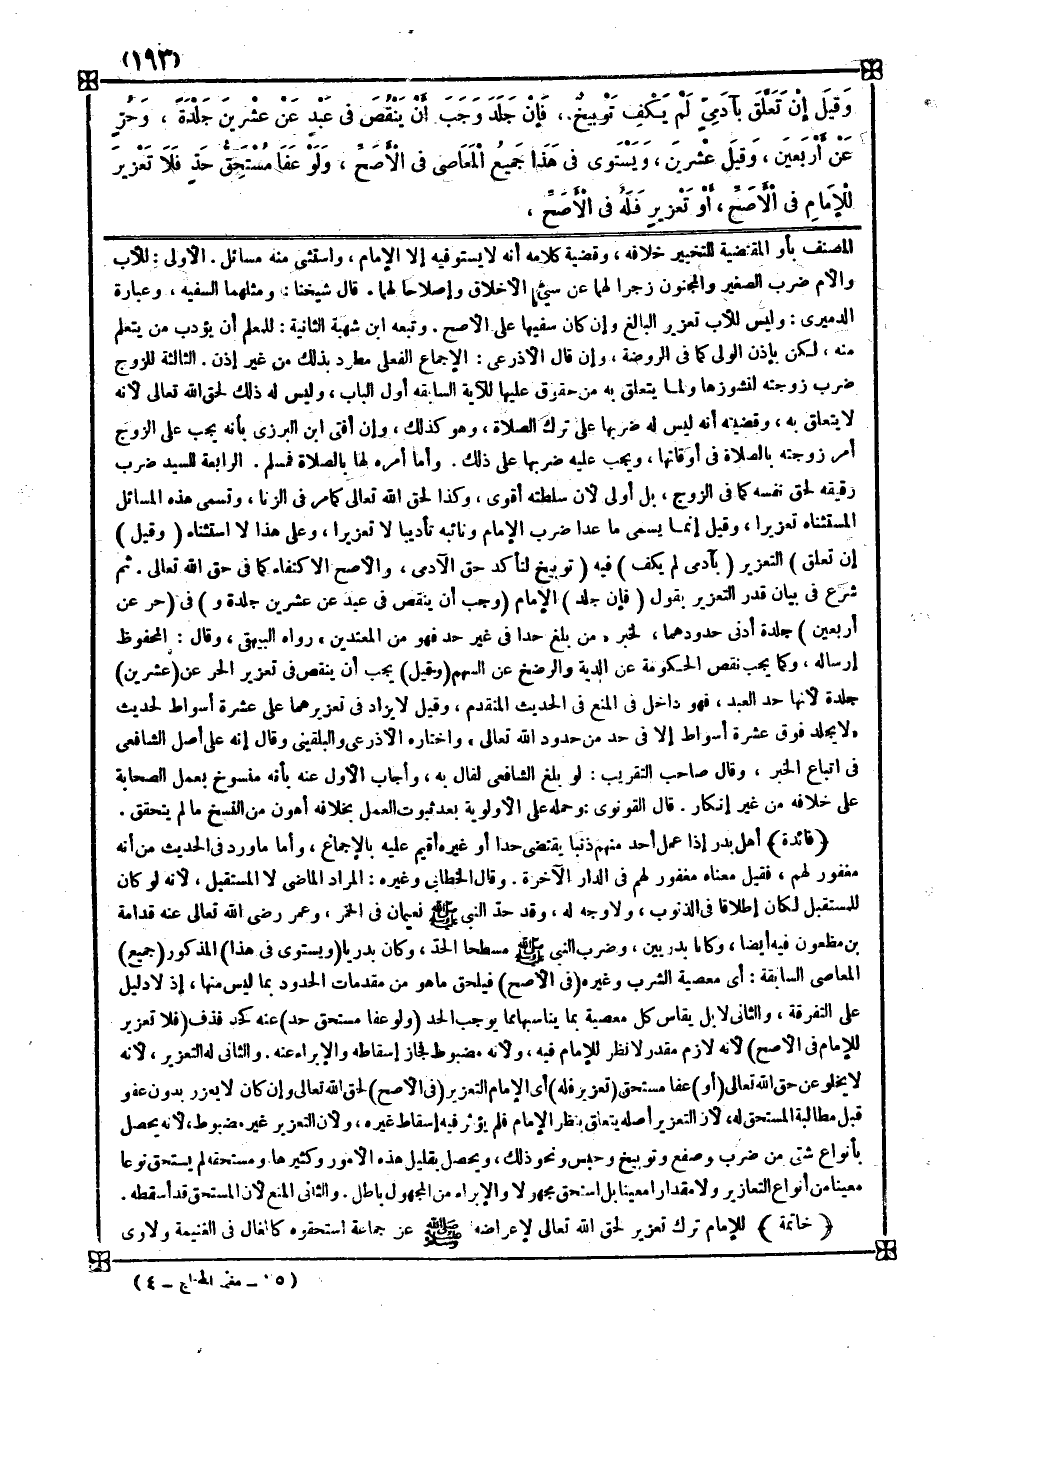 (١٩٣)
وَقِيلَ إِنْ تَعَلَّقَ بِآدَمِيٍّ لَمْ يَكْفِ تَوْبِيخٌ ، فَإِنْ جَلَدَ وَجَبَ أَنْ يَنْقُصَ فِى عَبْدٍ عَنْ عِشْرِينَ جَلْدَةً ، وَحُرٍّ
عَنْ أَرْبَعِينَ ، وَقِيلَ عِشْرِينَ ، وَيَسْتَوِى فِى هَذَا جَمِيعُ الْمَعَاصِى فِى الْأَصَحِّ ، وَلَوْ عَفَا مُسْتَحِقُّ حَدٍّ فَلَا تَعْزِيرَ
لِلْإِمَامِ فِى الْأَصَحِّ ، أَوْ تَعْزِيرٍ فَلَهُ فِى الْأَصَحِّ ،
المصنف بأو المقتضية للتخيير خلافه ، وقضية كلامه أنه لايستوفيه إلا الإمام ، واستثنى منه مسائل . الأولى : للأب
والأم ضرب الصغير والمجنون زجرا لهما عن سيئ الاخلاق وإصلاحا لهما . قال شيخنا : ومثلهما السفيه ، وعبارة
الدميرى : وليس للأب تعزير البالغ وإن كان سفيها على الأصح . وتبعه ابن شهبة الثانية : للمعلم أن يؤدب من يتعلم
منه ، لكن بإذن الولى كما فى الروضة ، وإن قال الأذرعى : الإجماع الفعلى مطرد بذلك من غير إذن . الثالثة للزوج
ضرب زوجته لنشوزها ولمـا يتعلق به من حقوق عليها للآية السابقه أول الباب ، وليس له ذلك لحق الله تعالى لأنه
لايتعلق به ، وقضيته أنه ليس له ضربها على ترك الصلاة ، وهو كذلك ، وإن أفتى ابن البرزى بأنه يجب على الزوج
أمر زوجته بالصلاة فى أوقاتها ، ويجب عليه ضربها على ذلك . وأما أمره لها بالصلاة فمسلم . الرابعة للسيد ضرب
رقيقه لحق نفسه كما فى الزوج ، بل أولى لأن سلطنته أقوى ، وكذا لحق الله تعالى كمامر فى الزنا ، وتسمى هذه المسائل
المستثناه تعزيرا ، وقيل إنمـا يسمى ما عدا ضرب الإمام ونائبه تأديبا لا تعزيرا ، وعلى هذا لا استثناء ( وقيل )
إن تعلق ) التعزير ( بآدمى لم يكف ) فيه ( توبيخ لتأكد حق الآدمى ، والأصح الاكتفاء كما فى حق الله تعالى . ثم
شرع فى بيان قدر التعزير بقول ( فإن جلد ) الإمام ( وجب أن ينقص فى عبد عن عشرين جلدة و ) فى ( حر عن
أربعين ) جلدة أدنى حدودهما ، لخبر « من بلغ حدا فى غير حد فهو من المعتدين » رواه البيهقى ، وقال : المحفوظ
إرساله ، وكما يجب نقص الحكومة عن الدية والرضخ عن السهم (وقيل) يجب أن ينقص فى تعزير الحر عن (عشرين)
جلدة لأنها حد العبد ، فهو داخل فى المنع فى الحديث المتقدم ، وقيل لايزاد فى تعزيرهما على عشرة أسواط لحديث
« لايجلد فوق عشرة أسواط إلا فى حد من حدود الله تعالى » واختاره الأذرعى والبلقينى وقال إنه على أصل الشافعى
فى اتباع الخبر ، وقال صاحب التقريب : لو بلغ الشافعى لقال به ، وأجاب الأول عنه بأنه منسوخ بعمل الصحابة
على خلافه من غير إنكار . قال القونوى : وحمله على الأولوية بعد ثبوت العمل بخلافه أهون من النسخ ما لم يتحقق .
( فائدة ) أهل بدر إذا عمل أحد منهم ذنبا يقتضى حدا أو غيره أقيم عليه بالإجماع ، وأما ماورد فى الحديث من أنه
مغفور لهم ، فقيل معناه مغفور لهم فى الدار الآخرة . وقال الخطابى وغيره : المراد الماضى لا المستقبل ، لأنه لو كان
للمستقبل لكان إطلاقا فى الذنوب ، ولا وجه له ، وقد حدّ النبى ﷺ نعيمان فى الخمر ، وعمر رضى الله تعالى عنه قدامة
بن مظعون فيه أيضا ، وكانا بدريين ، وضرب النبى ﷺ مسطحا الحدّ ، وكان بدريا (ويستوى فى هذا) المذكور (جميع)
المعاصى السابقة : أى معصية الشرب وغيره (فى الأصح) فيلحق ماهو من مقدمات الحدود بما ليس منها ، إذ لادليل
على التفرقة ، والثانى لا بل يقاس كل معصية بما يناسبها مما يوجب الحد (ولو عفا مستحق حد) عنه كحد قذف (فلا تعزير
للإمام فى الأصح) لأنه لازم مقدر لا نظر للإمام فيه ، ولأنه مضبوط فجاز إسقاطه والإبراء عنه . والثانى له التعزير ، لأنه
لايخلو عن حق الله تعالى (أو) عفا مستحق (تعزير فله) أى الإمام التعزير (فى الأصح) لحق الله تعالى وإن كان لايعزر بدون عفو
قبل مطالبة المستحق له ، لأن التعزير أصله يتعلق بنظر الإمام فلم يؤثر فيه إسقاط غيره ، ولأن التعزير غير مضبوط ، لأنه يحصل
بأنواع شتى من ضرب وصفع وتوبيخ وحبس ونحو ذلك ، ويحصل بقليل هذه الأمور وكثيرها ومستحقه لم يستحق نوعا
معينا من أنواع التعازير ولا مقدارا معينا بل استحق مجهولا والإبراء من المجهول باطل . والثانى المنع لأن المستحق قد أسقطه .
( خاتمة ) للإمام ترك تعزير لحق الله تعالى لإعراضه ﷺ عن جماعة استحقوه كالغال فى الغنيمة ولاوى
(٢٥ ـ مغنى المحتاج ـ ٤)